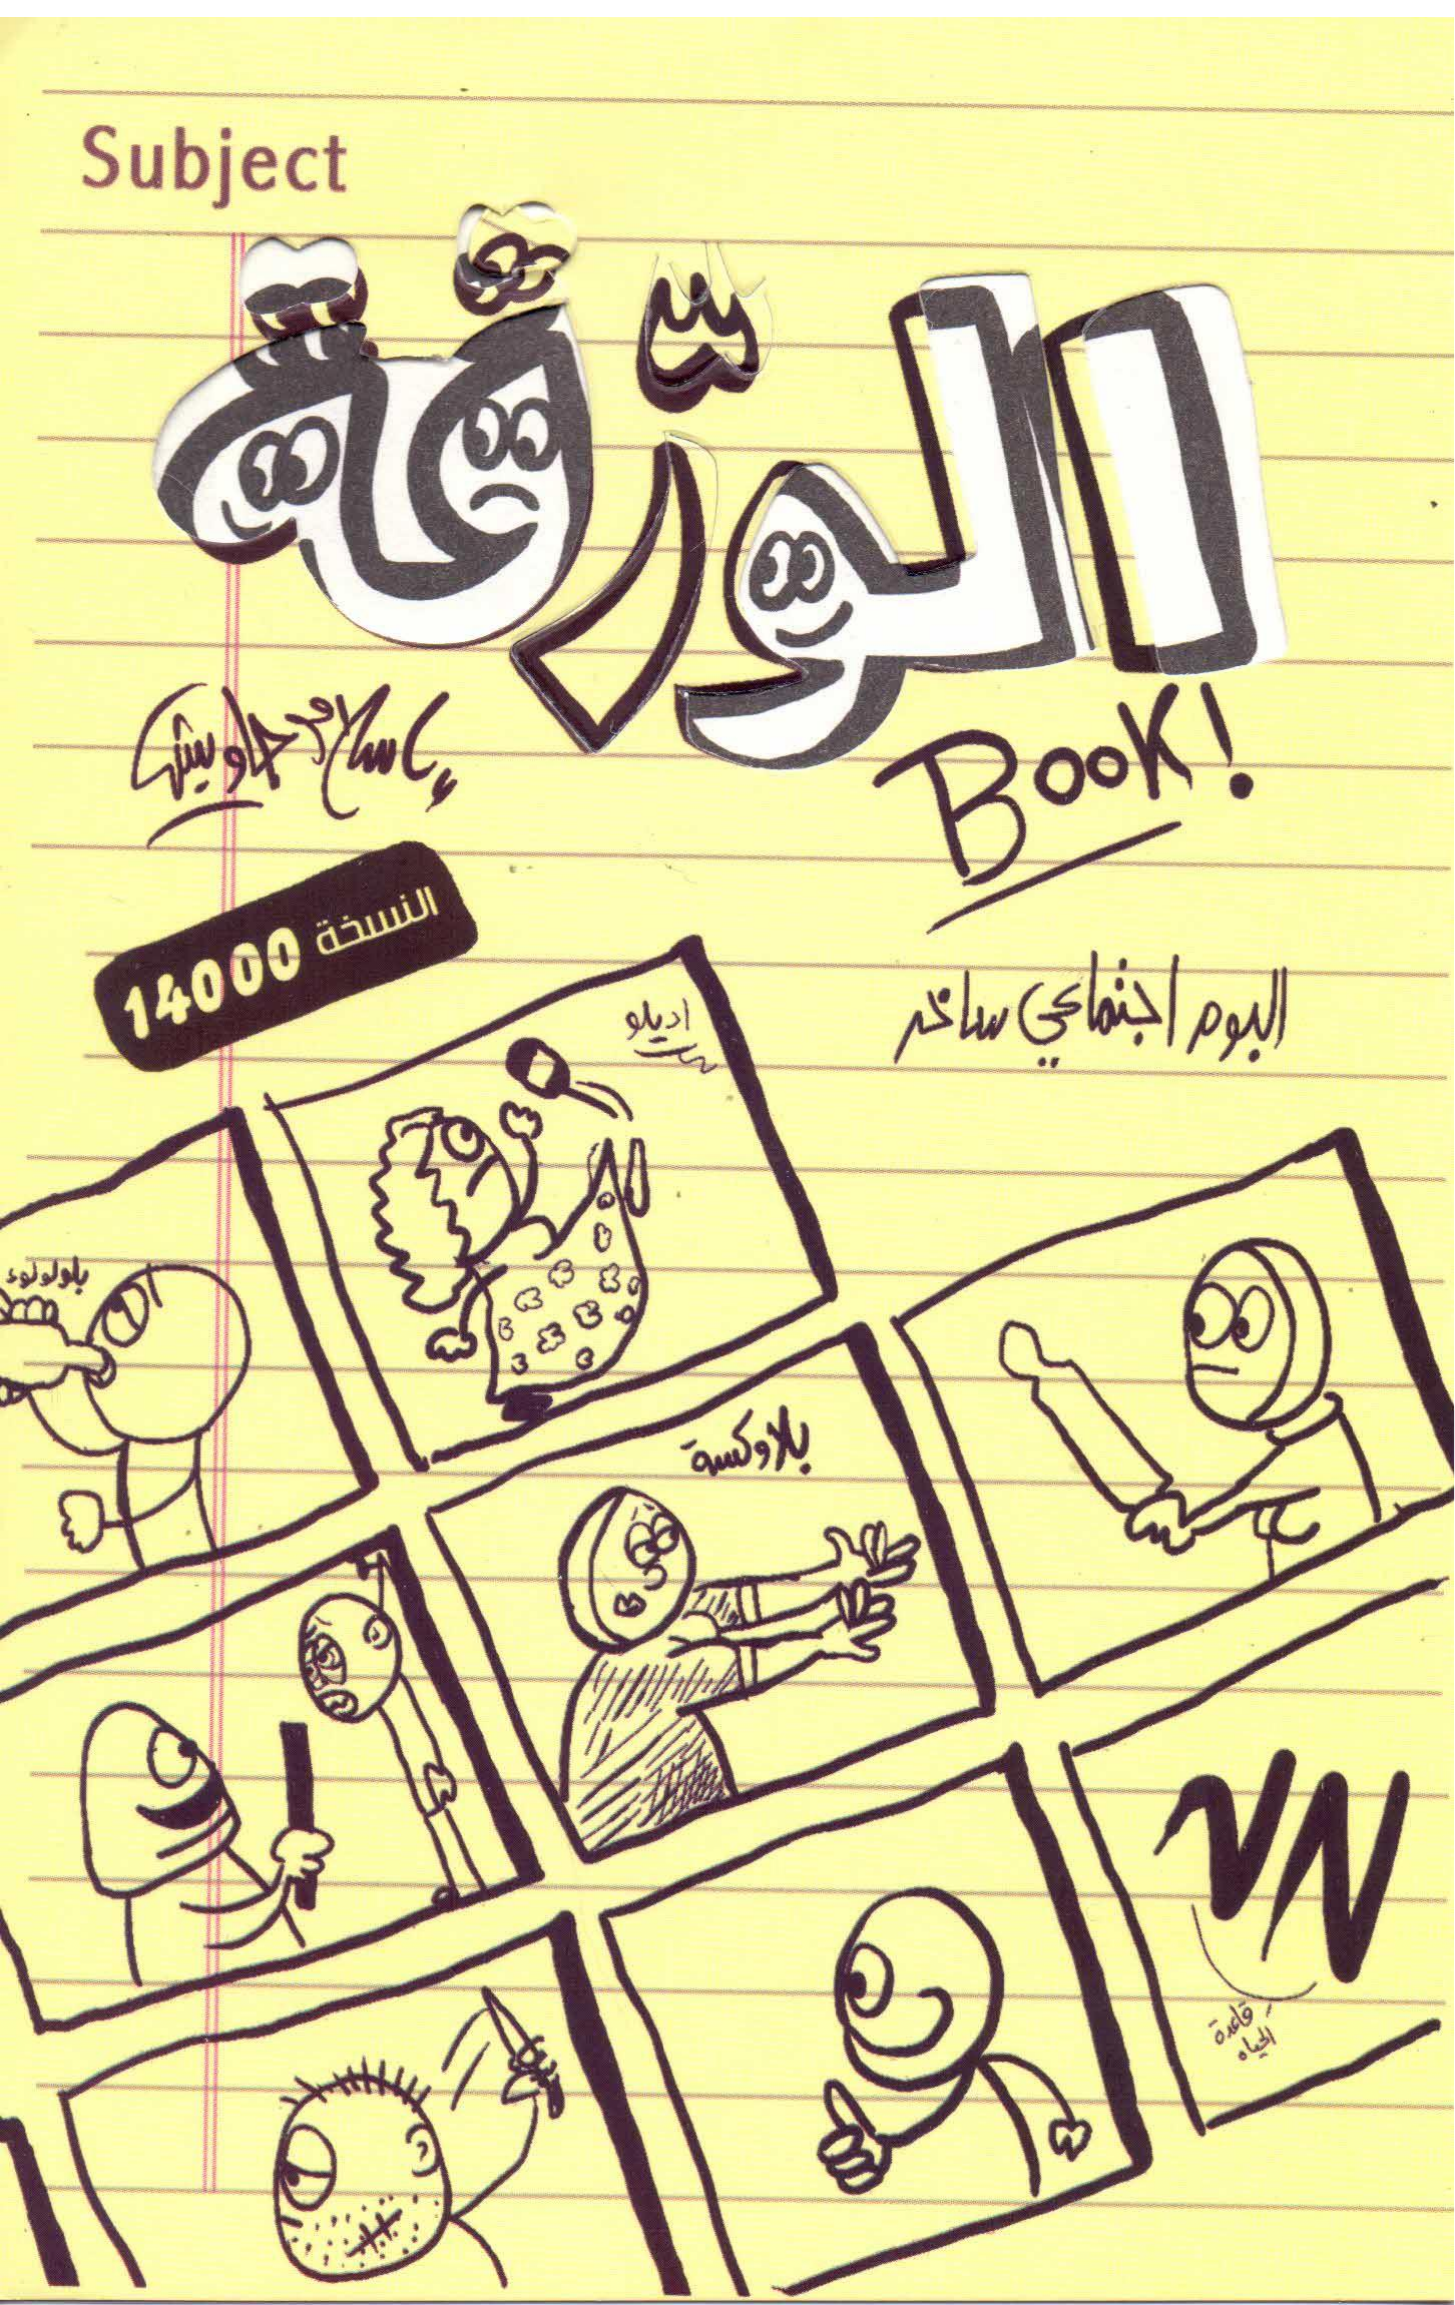 Subject
الورّقة
BOOK!
إسلام جاويش
النسخة 14000
البوم اجتماعي ساخر
اديلو
بلولولوء
بلاوكسة
قاعدة
الحياه